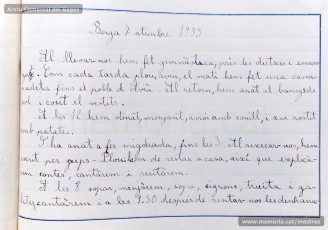 Arxiu Comarcal de Bages
Berga 7 setembre 1933
Al llevar-nos hem fet gimnàstica, després les dutxes i esmor-
zar. Com cada tarda plou, avui, el matí hem fet una cami-
nadeta fins el poble d'Avià. Al retorn, hem anat al bany de
sol i cosit el vestits.
A les 12 hem dinat, menjant, arròs amb conill, i xai rostit
amb patates.
S'ha anat a fer migdiada, fins les 3. Al aixecar-nos, hem
escrit per grups. Plou i hem de restar a casa, així que expliquem
contes, cantàrem i recitàrem.
A les 8 sopar, menjàrem, sopa, cigrons, truita i ga-
letes, cantàrem i a les 9.30 després de rentar-nos les dents anà-
www.memoria.cat/mestres